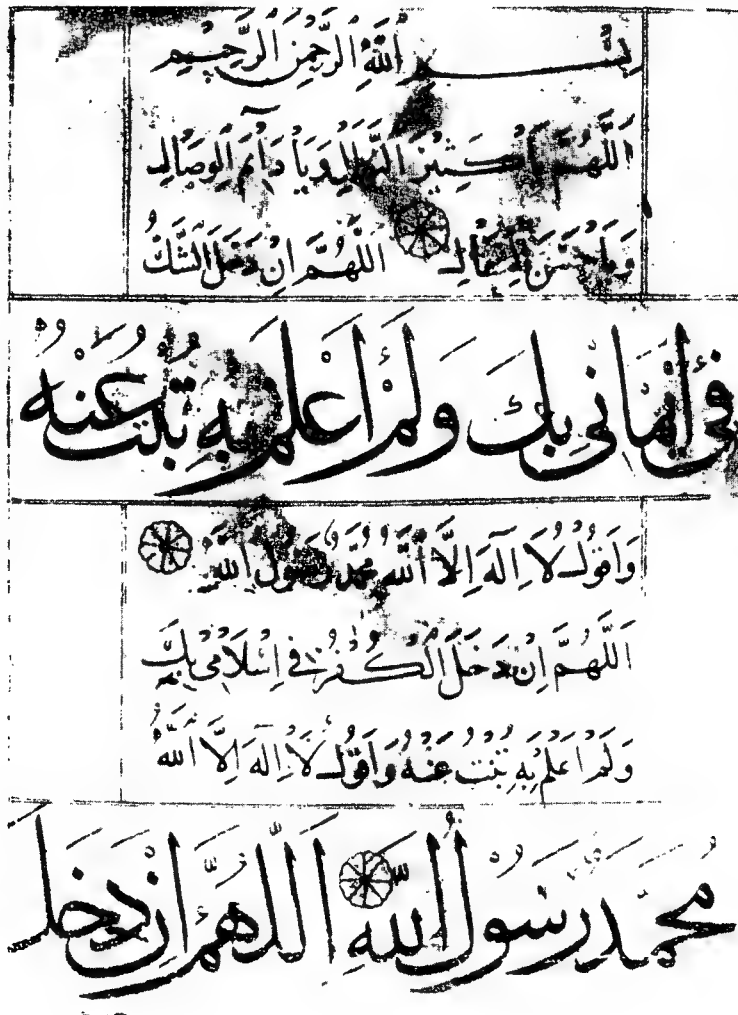 بِسْمِ اللَّهِ الرَّحْمَنِ الرَّحِيمِ
اَللَّهُمَّ يَا كَثِيرَ النَّوَالِ وَيَا دَآئِمَ الْوِصَالِ
وَيَا حَسَنَ الْفِعَالِ اَللَّهُمَّ اِنْ دَخَلَ الشَّكُّ
فِى اِيْمَانِى بِكَ وَلَمْ اَعْلَمْ بِهِ تُبْتُ عَنْهُ
وَاَقُولُ لَا اِلٰهَ اِلَّا اللَّهُ مُحَمَّدٌ رَسُولُ اللَّهِ
اَللَّهُمَّ اِنْ دَخَلَ الْكُفْرُ فِى اِسْلَامِى بِكَ
وَلَمْ اَعْلَمْ بِهِ تُبْتُ عَنْهُ وَاَقُولُ لَا اِلٰهَ اِلَّا اللَّهُ
مُحَمَّدٌ رَسُولُ اللَّهِ اَللَّهُمَّ اِنْ دَخَلَ